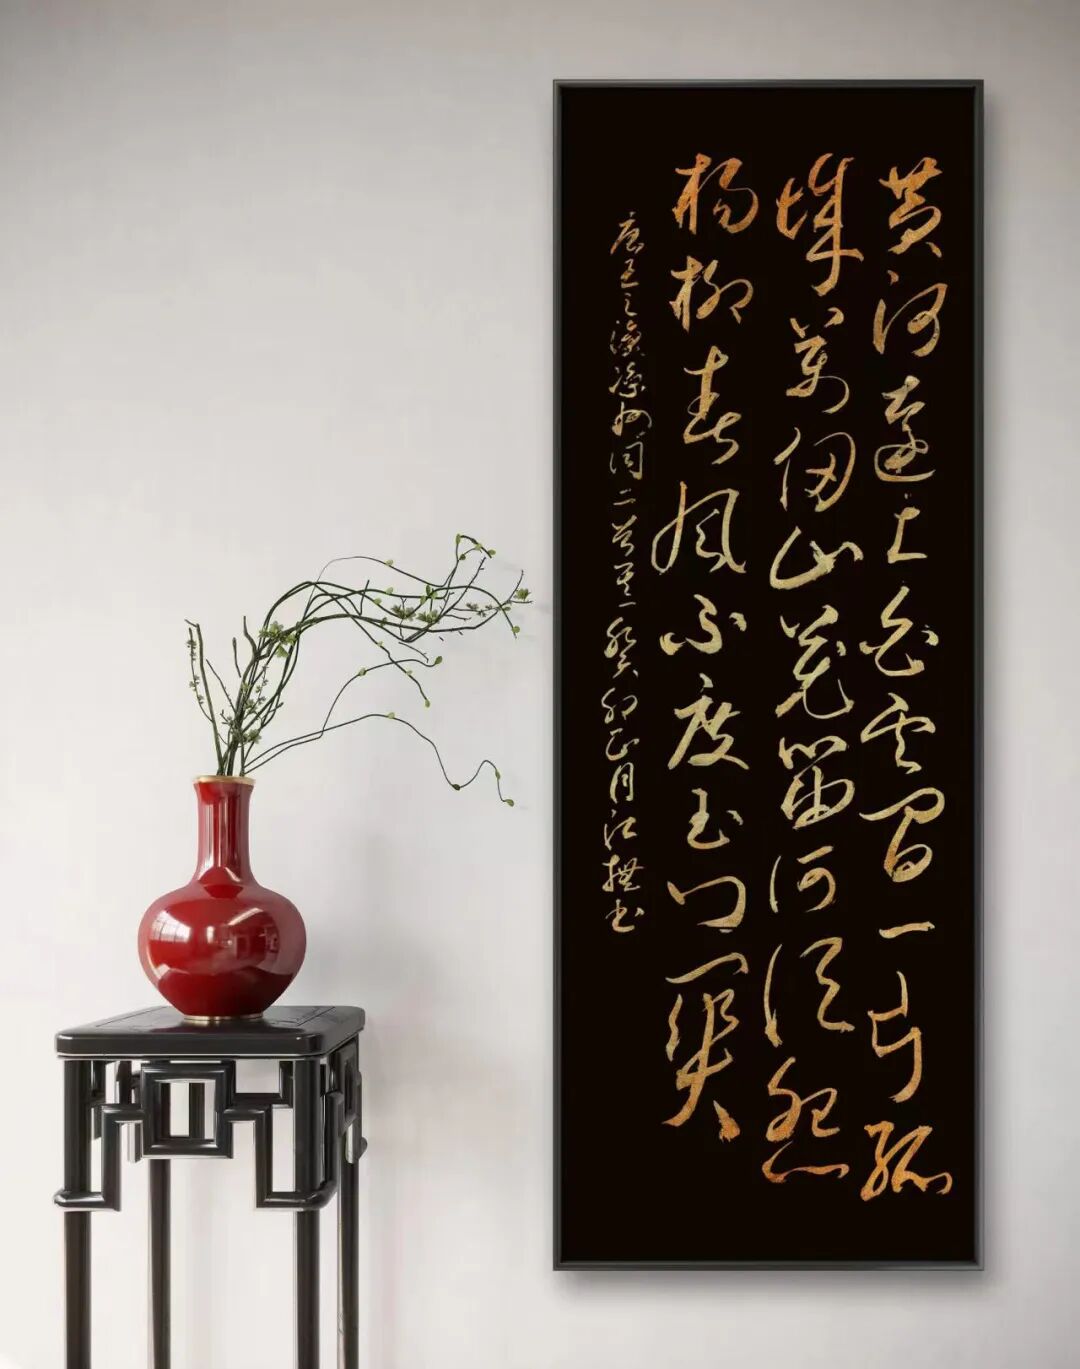 黄河远上白云间一片孤
城万仞山羌笛何须怨
杨柳春风不度玉门关
唐王之涣凉州词二首其一癸卯正月江梅书